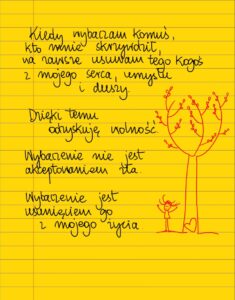 Kiedy wybaczam komuś,
kto mnie skrzywdził,
na zawsze usuwam tego kogoś
z mojego serca, umysłu
i duszy
Dzięki temu
odzyskuję wolność.
Wybaczenie nie jest
akceptowaniem zła.
Wybaczenie jest
usunięciem go
z mojego życia